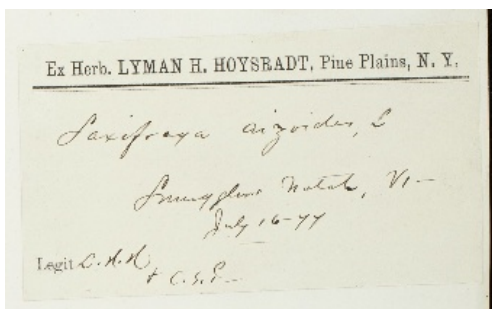 Ex Herb. LYMAN H. HOYSRADT, Pine Plains, N. Y.
Saxifraga aizoides, L
Smugglers Notch, Vt
July 16-77
Legit L. H. H.
+ C. G. P.